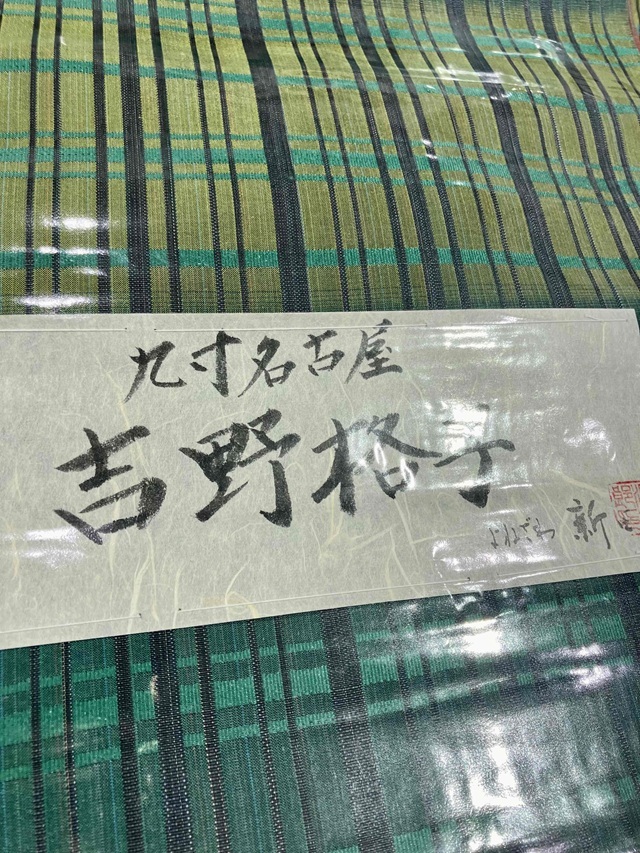 九寸名古屋
吉野格子
よねざわ 新